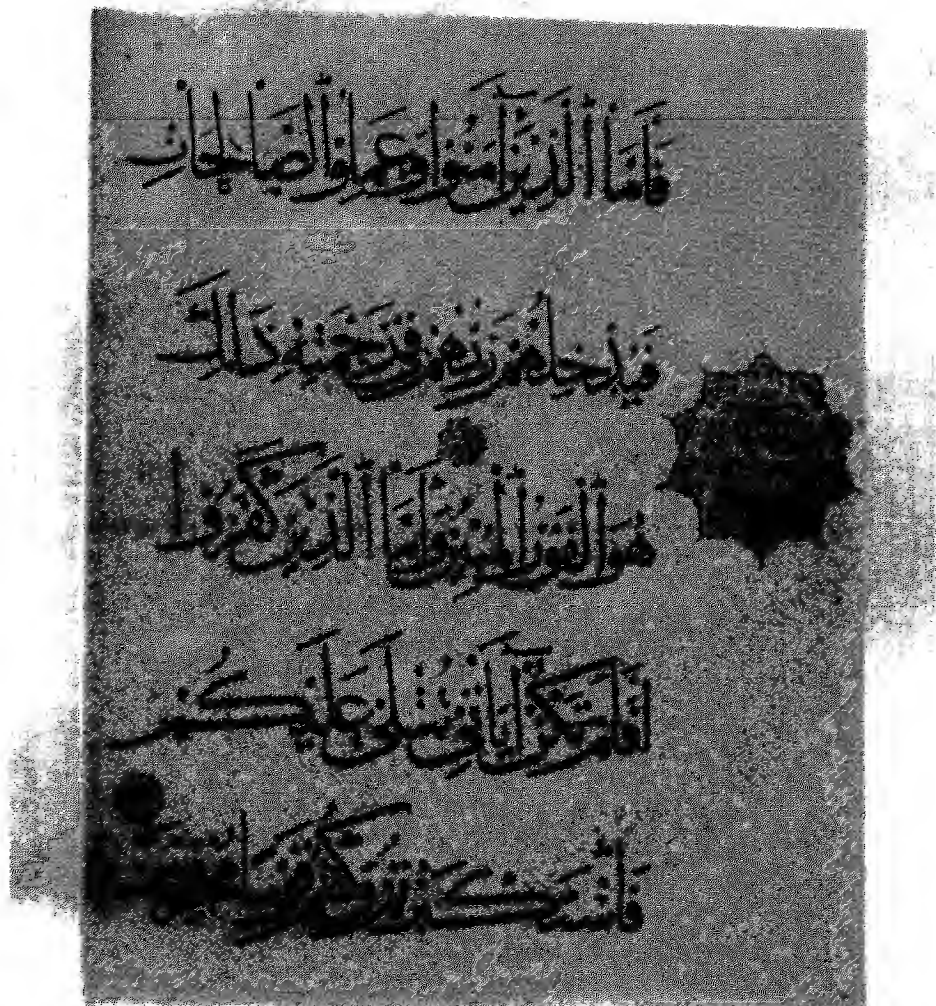 فَأَمَّا الَّذِينَ آمَنُوا وَعَمِلُوا الصَّالِحَاتِ
فَيُدْخِلُهُمْ رَبُّهُمْ فِي رَحْمَتِهِ ذَالِكَ
هُوَ الْفَوْزُ الْمُبِينُ وَأَمَّا الَّذِينَ كَفَرُوا
أَفَلَمْ تَكُنْ آيَاتِي تُتْلَى عَلَيْكُمْ
فَاسْتَكْبَرْتُمْ وَكُنْتُمْ قَوْمًا